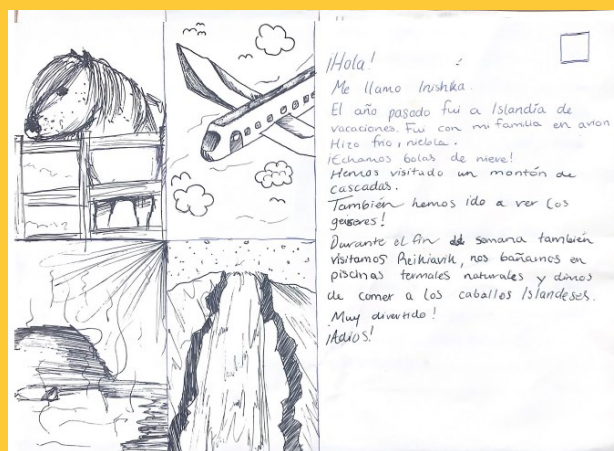 ¡Hola!
Me llamo Irishka.
El año pasado fui a Islandia de
vacaciones. Fui con mi familia en avión
Hizo frío, niebla.
¡Echamos bolas de nieve!
Hemos visitado un montón de
cascadas.
También hemos ido a ver los
geiseres!
Durante el fin de semana también
visitamos Reikiavik, nos bañamos en
piscinas termales naturales y dimos
de comer a los caballos Islandeses.
Muy divertido!
¡Adiós!